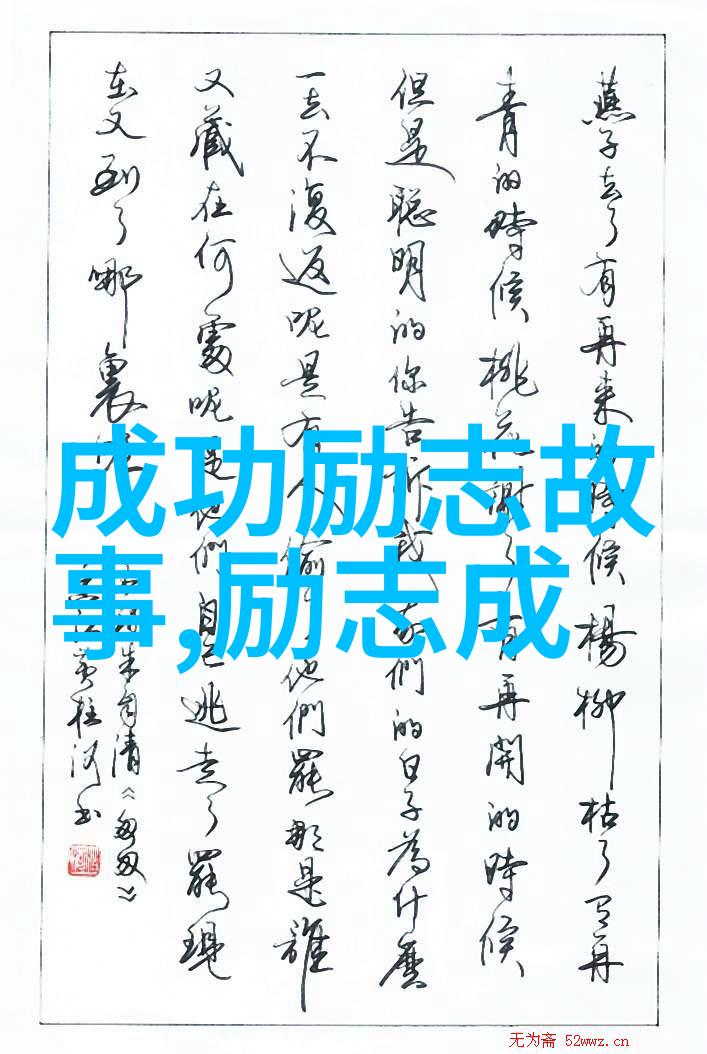 燕子去了有再来的時候楊柳枯了有再
青的時候桃花謝了有再開的時候
但是聪明的你告訴我我們的日子為什麼
一去不復返呢是有人偷了他們罷那是誰
又藏在何處呢是他們自己逃走了罷現
在又到了哪裏呢
朱自清《匆匆》
黄柱河书
成功励志故
事,励志成
无为斋 52wwz.cn